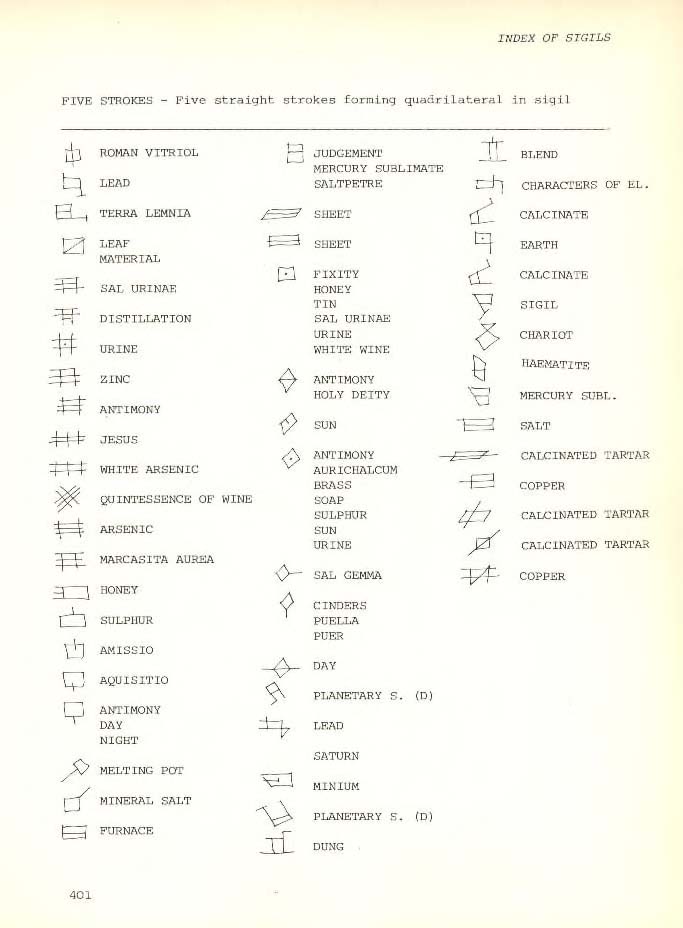 INDEX OF SIGILS
FIVE STROKES - Five straight strokes forming quadrilateral in sigil
ROMAN VITRIOL
LEAD
TERRA LEMNIA
LEAF
MATERIAL
SAL URINAE
DISTILLATION
URINE
ZINC
ANTIMONY
JESUS
WHITE ARSENIC
QUINTESSENCE OF WINE
ARSENIC
MARCASITA AUREA
HONEY
SULPHUR
AMISSIO
AQUISITIO
ANTIMONY
DAY
NIGHT
MELTING POT
MINERAL SALT
FURNACE
JUDGEMENT
MERCURY SUBLIMATE
SALTPETRE
SHEET
SHEET
FIXITY
HONEY
TIN
SAL URINAE
URINE
WHITE WINE
ANTIMONY
HOLY DEITY
SUN
ANTIMONY
AURICHALCUM
BRASS
SOAP
SULPHUR
SUN
URINE
SAL GEMMA
CINDERS
PUELLA
PUER
DAY
PLANETARY S. (D)
LEAD
SATURN
MINIUM
PLANETARY S. (D)
DUNG
BLEND
CHARACTERS OF EL.
CALCINATE
EARTH
CALCINATE
SIGIL
CHARIOT
HAEMATITE
MERCURY SUBL.
SALT
CALCINATED TARTAR
COPPER
CALCINATED TARTAR
CALCINATED TARTAR
COPPER
401